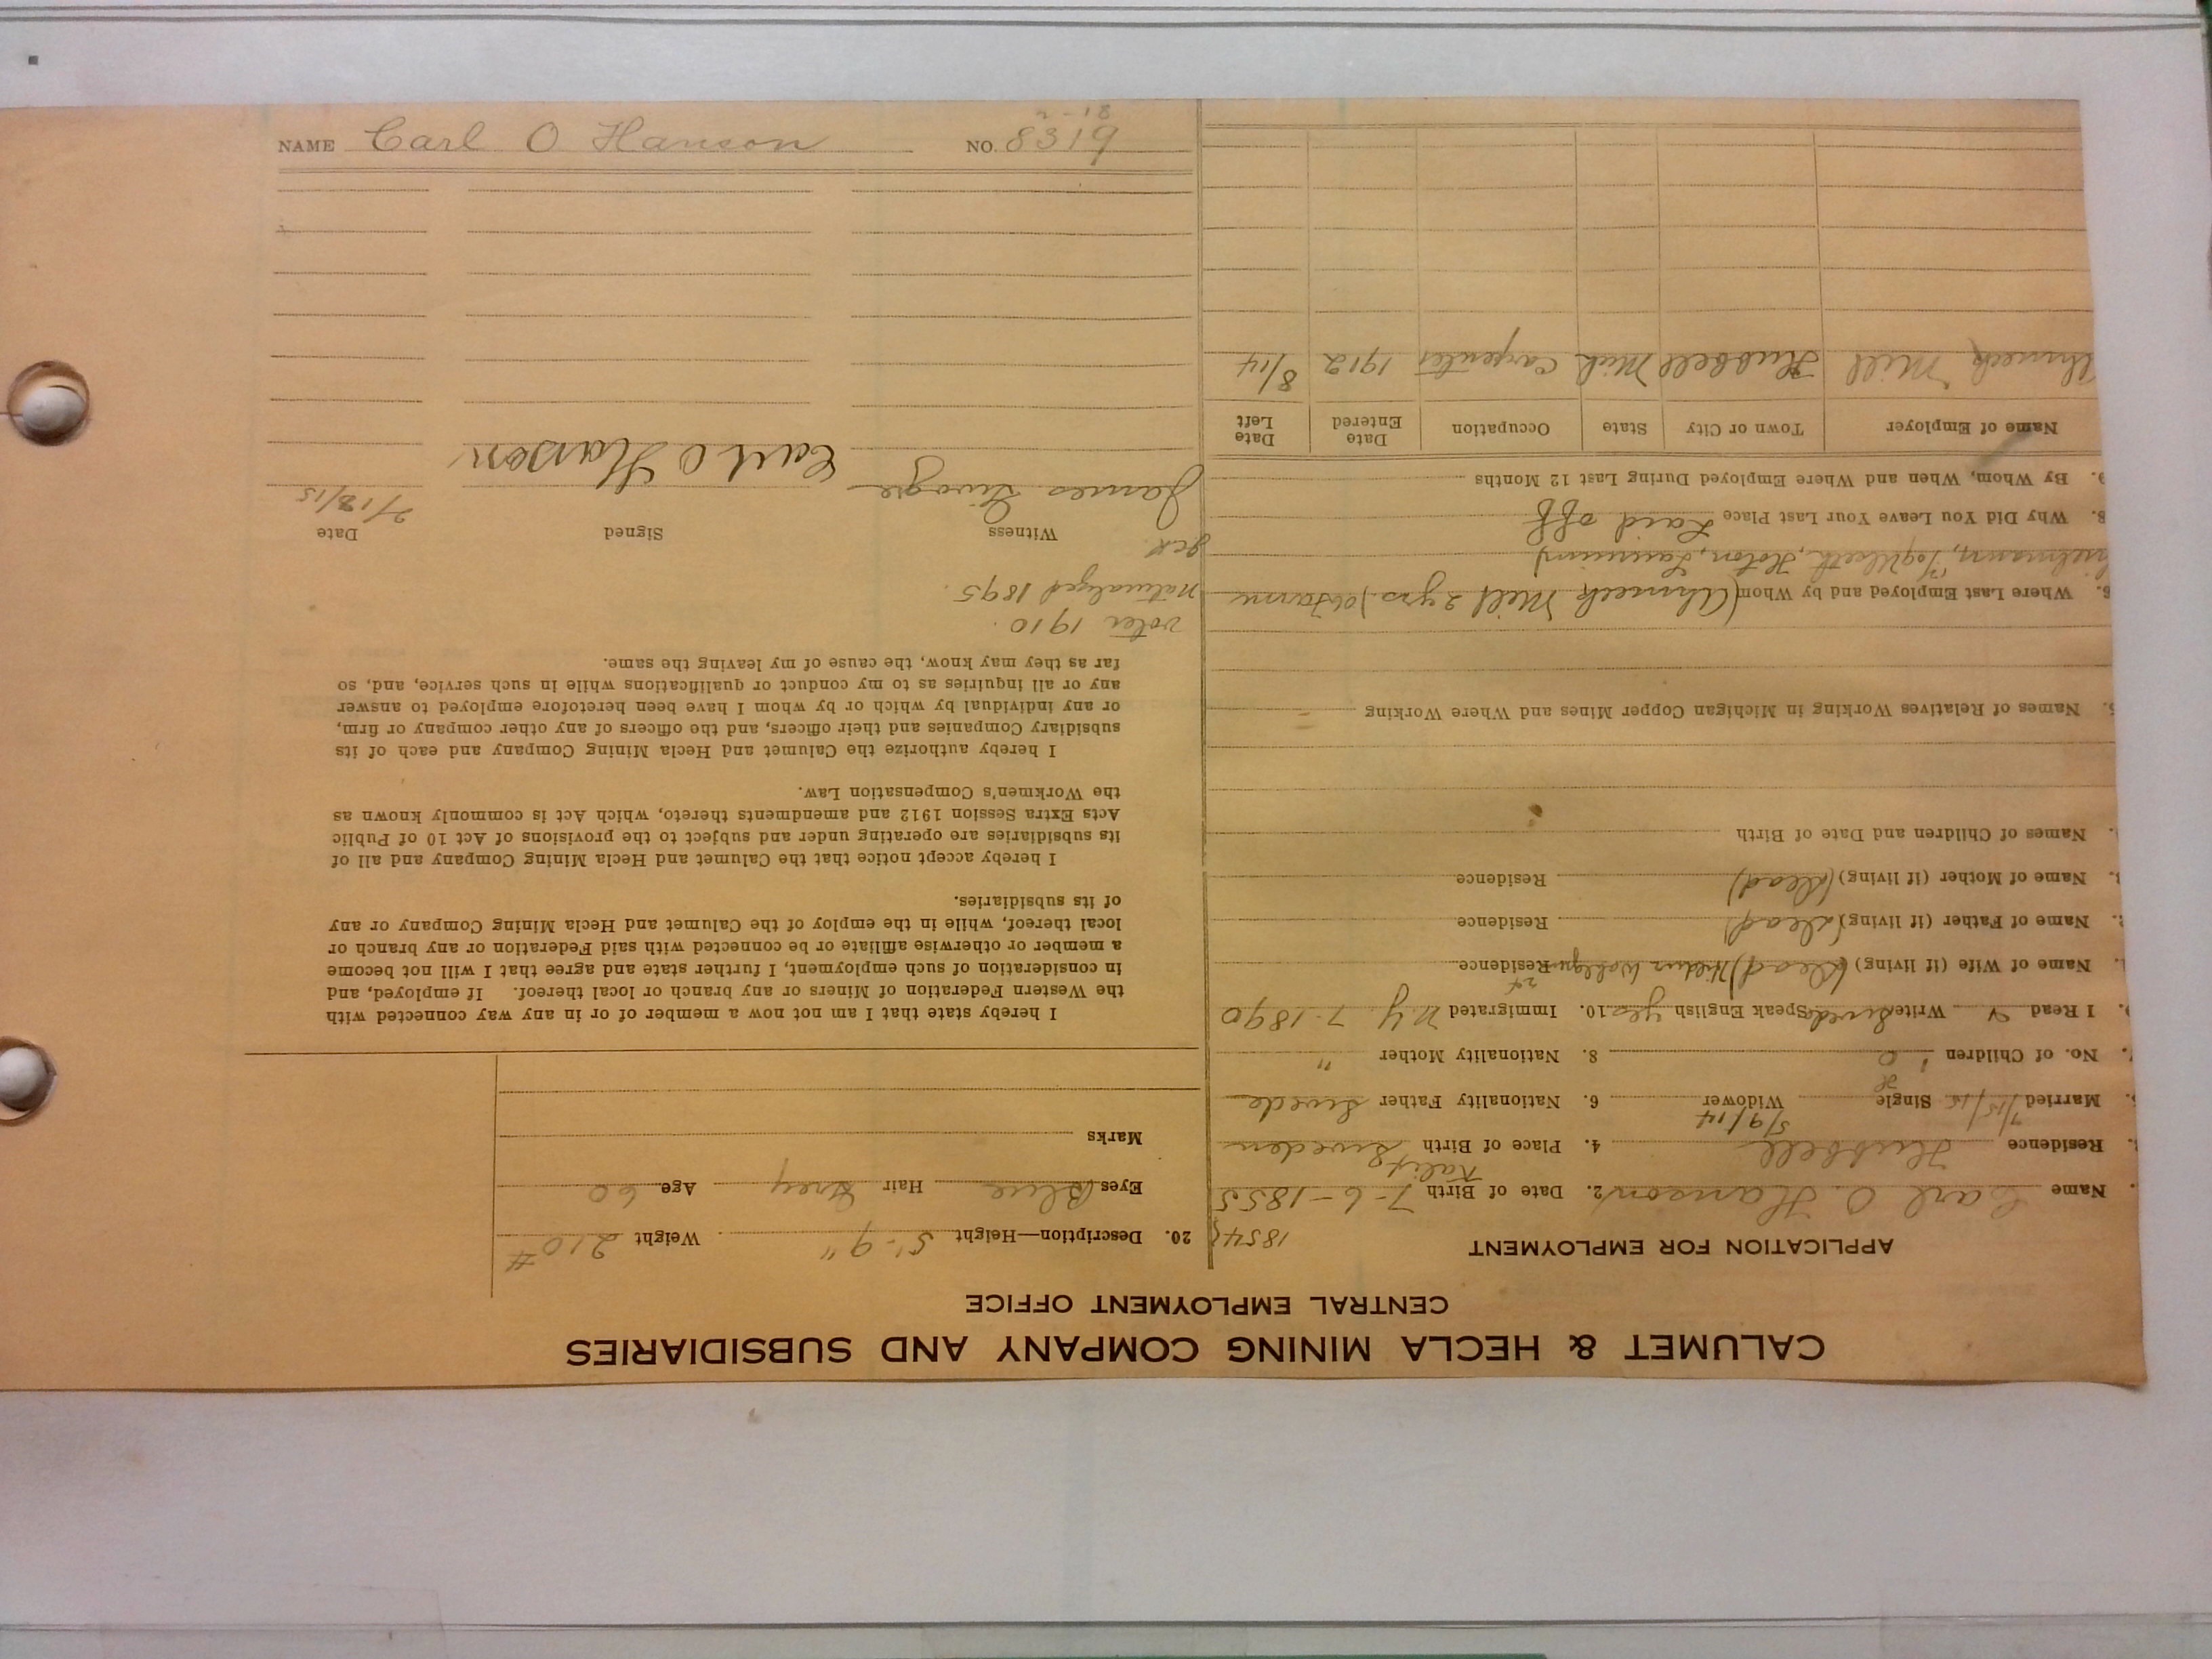 CALUMET & HECLA MINING COMPANY AND SUBSIDIARIES
CENTRAL EMPLOYMENT OFFICE
APPLICATION FOR EMPLOYMENT
1854
Name Carl O. Hanson 2. Date of Birth 7-6-1855
Residence Hubbell 4. Place of Birth Sweden
5/9/14
Married 7/15/15 Single Widower x 6. Nationality Father Swede
No. of Children 0 8. Nationality Mother "
I Read Write Swede Speak English yes 10. Immigrated N.Y. 7-1890
Name of Wife (if living) (dead) Residence
Name of Father (if living) (dead) Residence
Name of Mother (if living) (dead) Residence
Names of Children and Date of Birth
Names of Relatives Working in Michigan Copper Mines and Where Working –
Where Last Employed and by Whom (Ahmeek Mill 2 yrs)
Why Did You Leave Your Last Place Laid off
By Whom, When and Where Employed During Last 12 Months
Name of Employer Town or City State Occupation Date Entered Date Left
Ahmeek Mill Hubbell Mich Carpenter 1912 8/14
20. Description—Height 5'-9" Weight 210#
Eyes Blue Hair Grey Age 60
Marks
I hereby state that I am not now a member of or in any way connected with
the Western Federation of Miners or any branch or local thereof. If employed, and
in consideration of such employment, I further state and agree that I will not become
a member or otherwise affiliate or be connected with said Federation or any branch or
local thereof, while in the employ of the Calumet and Hecla Mining Company or any
of its subsidiaries.
I hereby accept notice that the Calumet and Hecla Mining Company and all of
its subsidiaries are operating under and subject to the provisions of Act 10 of Public
Acts Extra Session 1912 and amendments thereto, which Act is commonly known as
the Workmen's Compensation Law.
I hereby authorize the Calumet and Hecla Mining Company and each of its
subsidiary Companies and their officers, and the officers of any other company or firm,
or any individual by which or by whom I have been heretofore employed to answer
any or all inquiries as to my conduct or qualifications while in such service, and, so
far as they may know, the cause of my leaving the same.
voter 1910.
Naturalized 1895.
Witness Signed Date
James Carl O Hanson
NAME Carl O Hanson NO. 8319